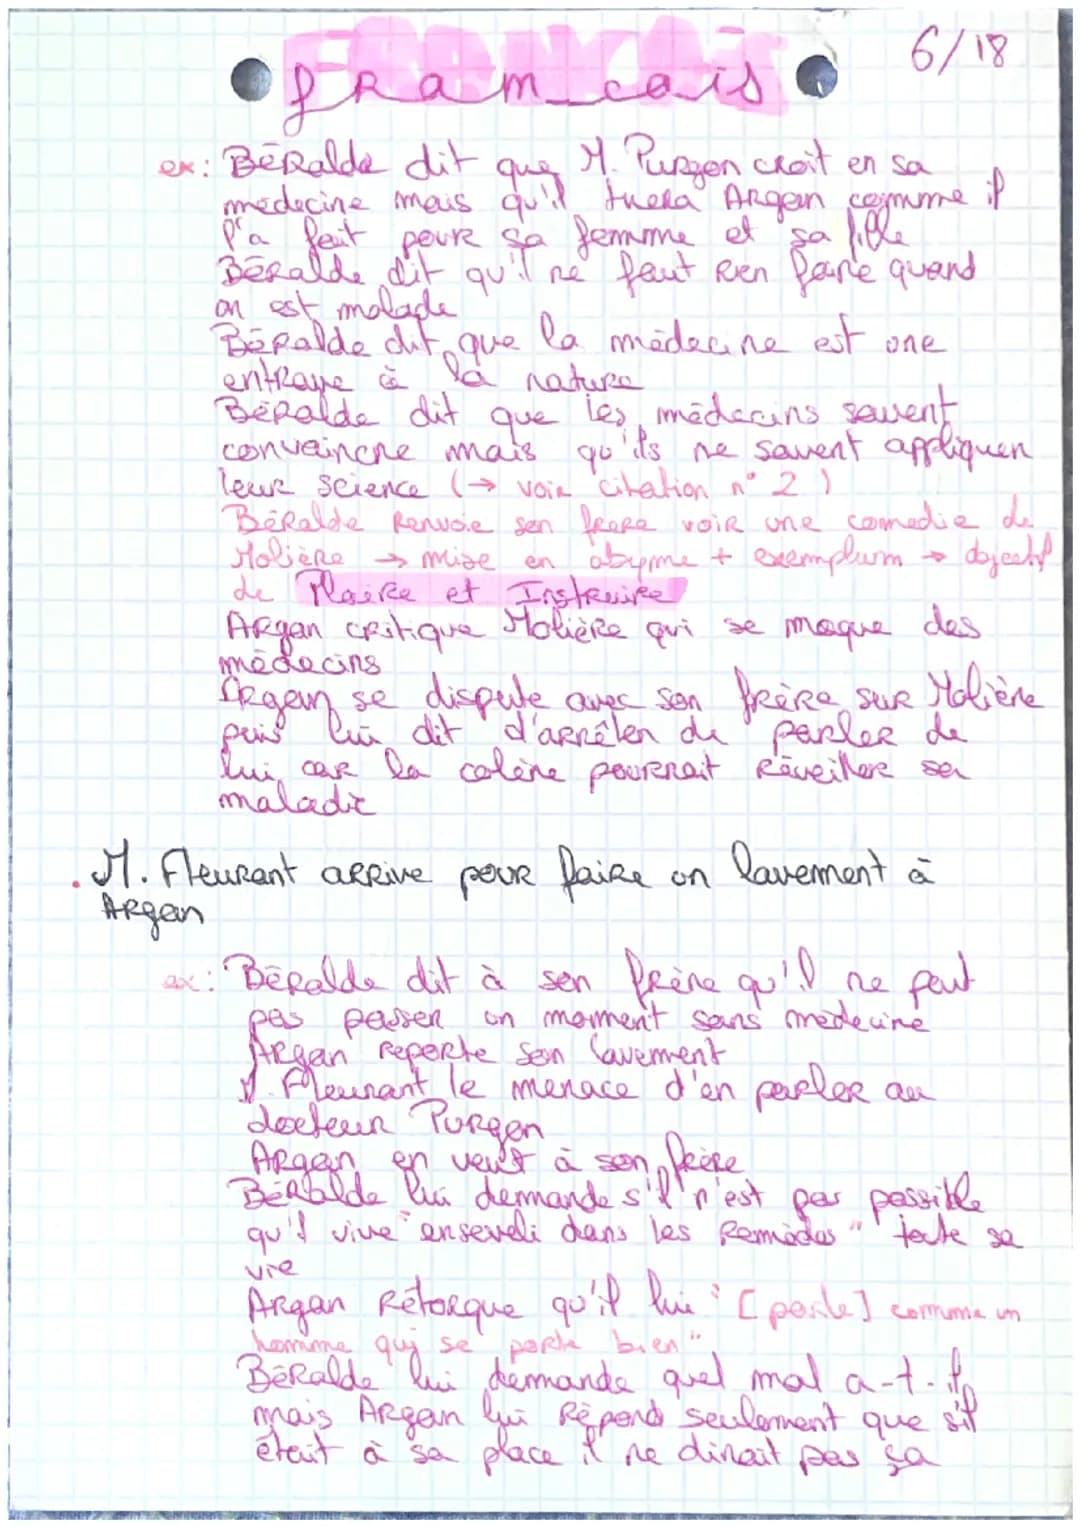 FRANÇAIS
français
6/18
ex: Béralde dit que M. Purgon croit en sa
médecine mais qu'il tuera Argan comme il
l'a fait pour sa femme et sa fille
Béralde dit qu'il ne faut rien faire quand
on est malade
Béralde dit que la médecine est une
entrave à la nature
Béralde dit que les médecins savent
convaincre mais qu'ils ne savent appliquer
leur science (→ voir citation n° 2)
Béralde renvoie son frère voir une comédie de
Molière → mise en abyme + exemplum → objectif
de Plaire et Instruire
Argan critique Molière qui se moque des
médecins
Argan se dispute avec son frère sur Molière
puis lui dit d'arrêter de parler de
lui car la colère pourrait réveiller sa
maladie
. M. Fleurant arrive pour faire un lavement à
Argan
ex: Béralde dit à son frère qu'il ne peut
pas passer un moment sans médecine
Argan reporte son lavement
M. Fleurant le menace d'en parler au
docteur Purgon
Argan en veut à son frère
Béralde lui demande s'il n'est pas possible
qu'il vive "enseveli dans les remèdes" toute sa
vie
Argan rétorque qu'il lui "[parle] comme un
homme qui se porte bien"
Béralde lui demande quel mal a-t-il,
mais Argan lui répond seulement que s'il
était à sa place il ne dirait pas ça